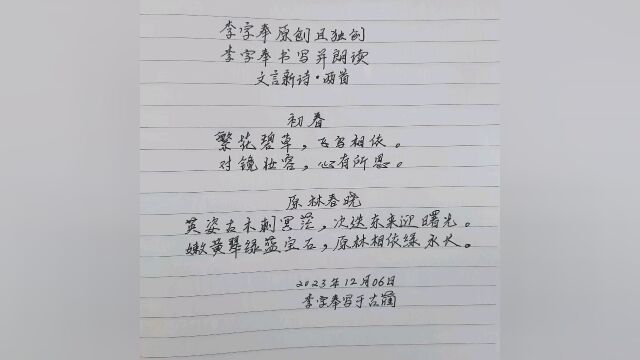 李字奉原创且独创
李字奉书写并朗读
文言新诗·两首
初春
繁花碧草，飞鸟相依。
对镜妆容，心有所思。
原林春晓
英姿古木刺冥茫，次迭东来迎曙光。
嫩黄翠绿蓝宝石，原林相依缘永长。
2023年12月06日
李字奉写于古蔺